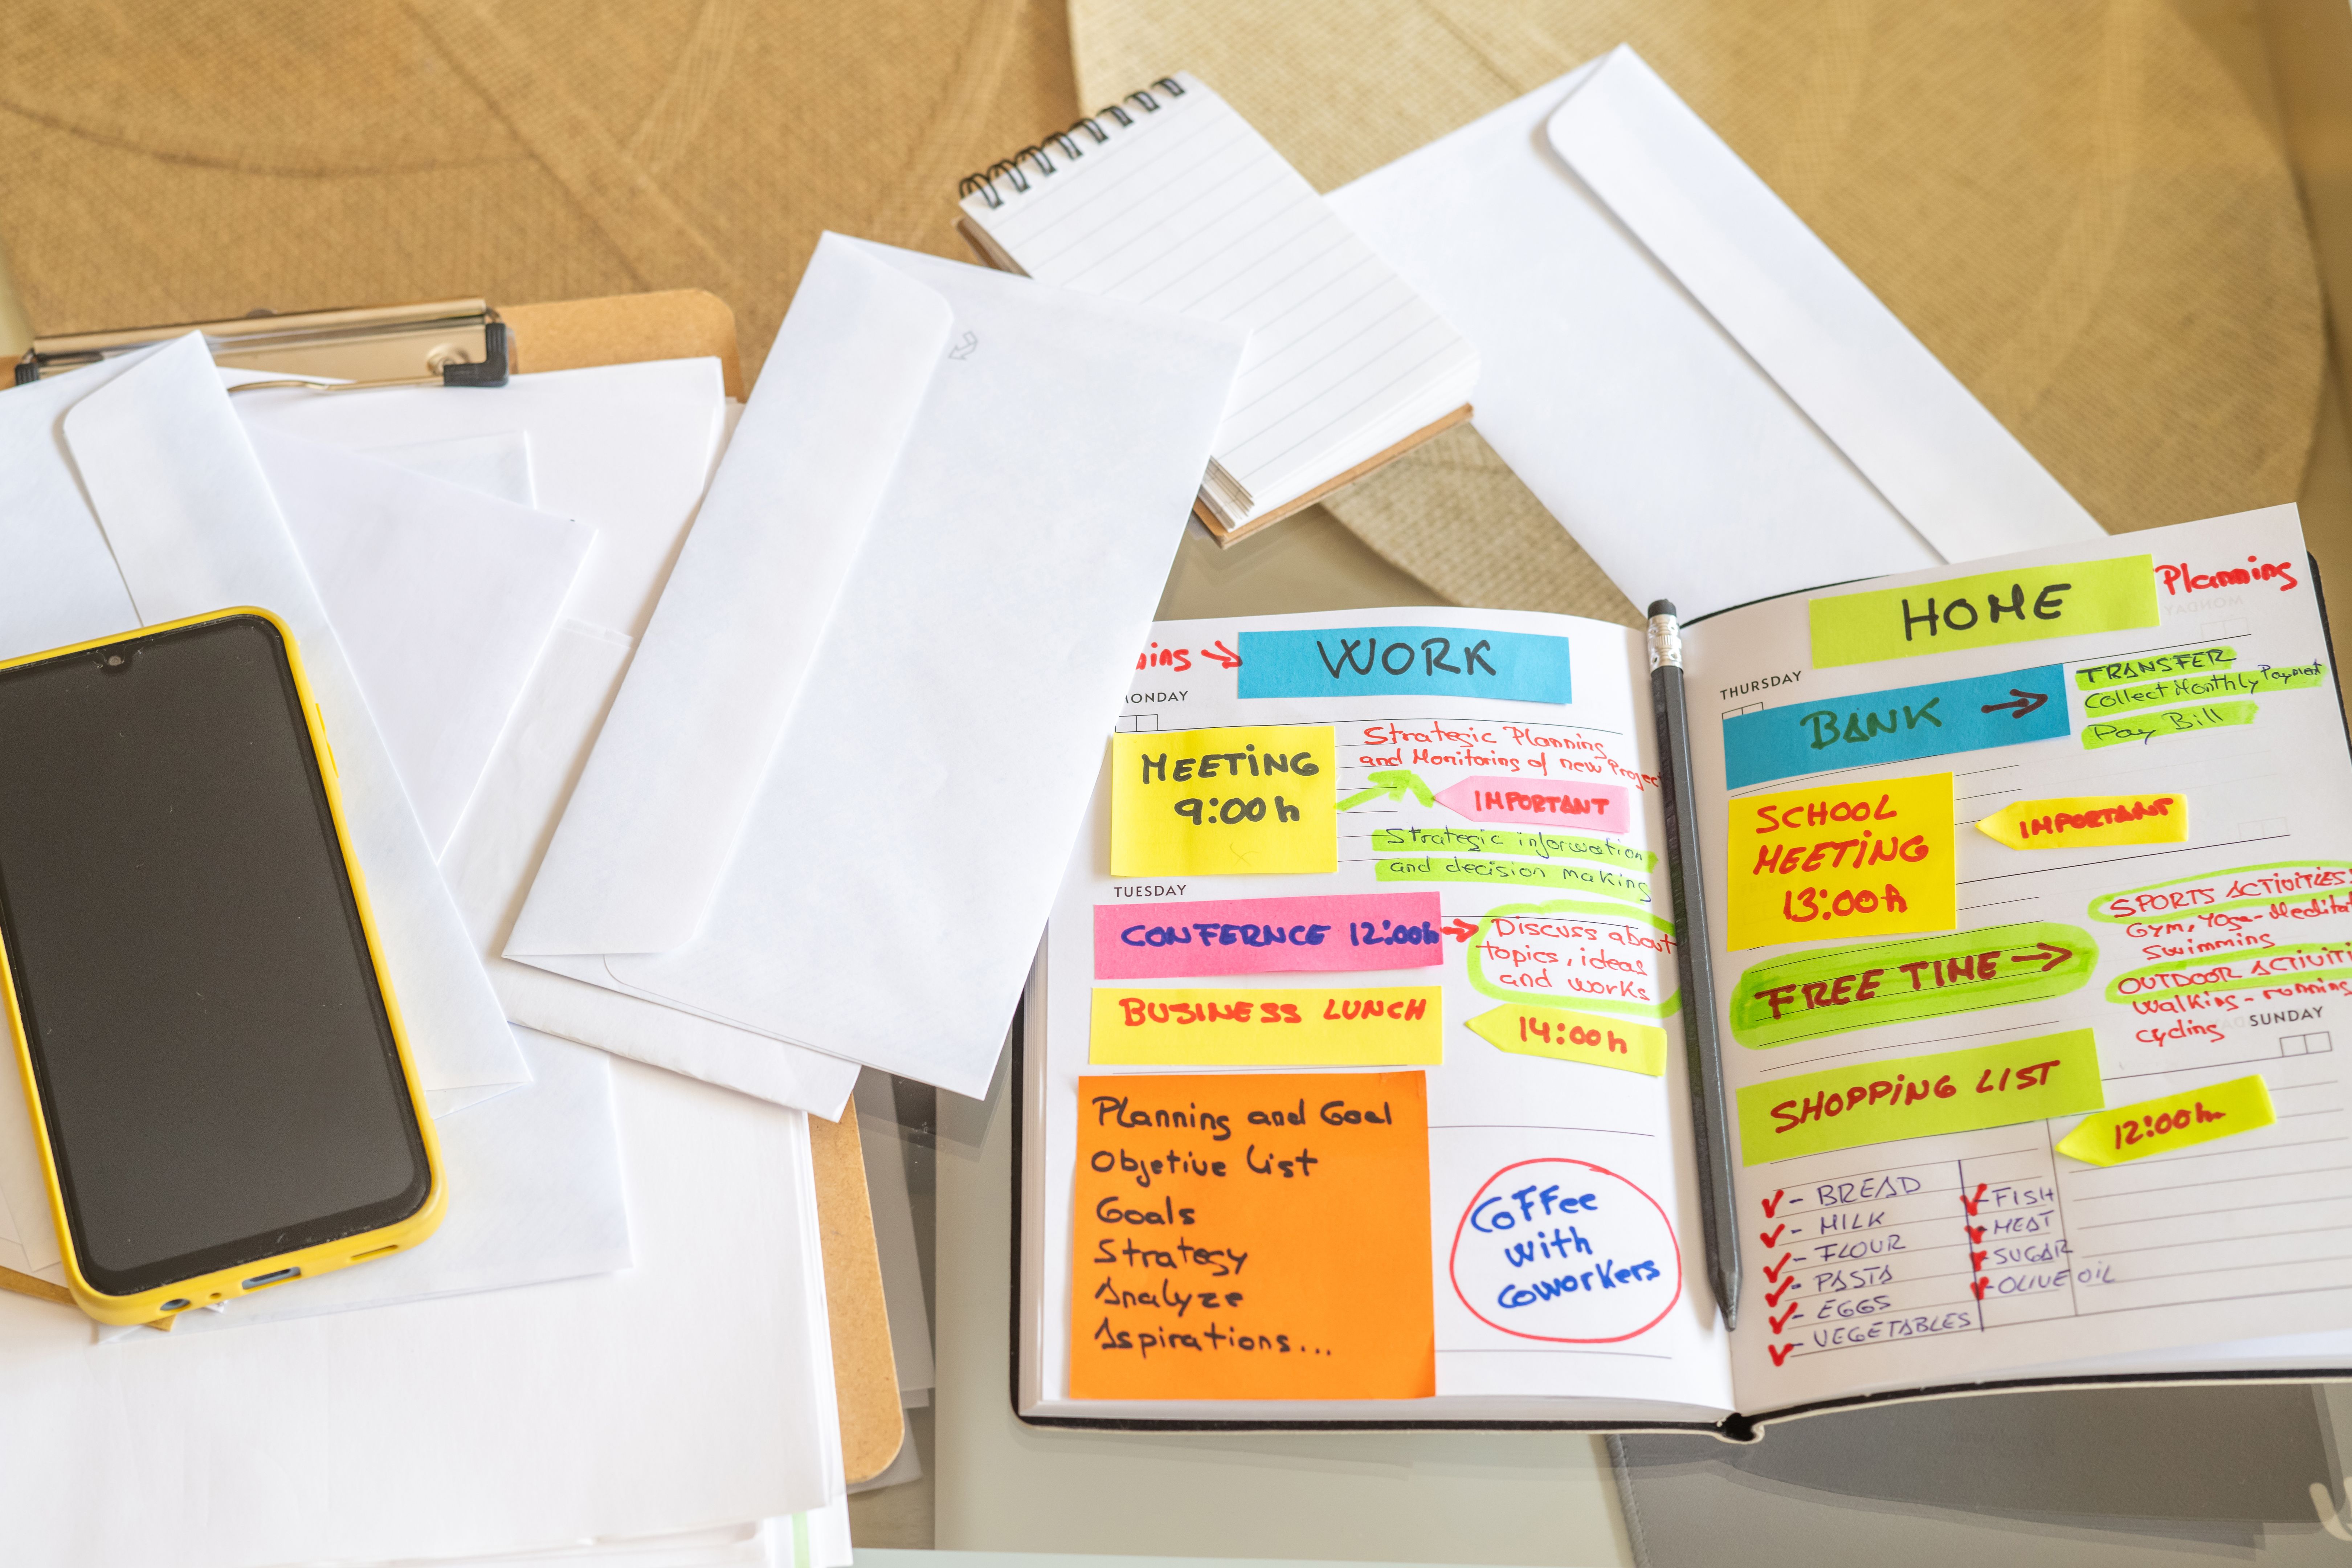 WORK
MONDAY
MEETING
9:00h
Strategic Planning
and Monitoring of new Project
IMPORTANT
Strategic information
and decision making
TUESDAY
CONFERNCE 12:00h
Discuss about
topics, ideas
and works
BUSINESS LUNCH
14:00h
Planning and Goal
Objetive List
Goals
Strategy
Analyze
Aspirations...
Coffee
with
coworkers
HOME
Planning
THURSDAY
BANK
TRANSFER
Collect Monthly Payment
Pay Bill
SCHOOL
MEETING
13:00h
IMPORTANT
FREE TIME
SPORTS ACTIVITIES
Gym, Yoga-
Swimming
OUTDOOR
Walking - running
cycling
SUNDAY
SHOPPING LIST
12:00h
- BREAD
- MILK
- FLOUR
- PASTA
- EGGS
- VEGETABLES
- FISH
- MEAT
- SUGAR
- OLIVE OIL